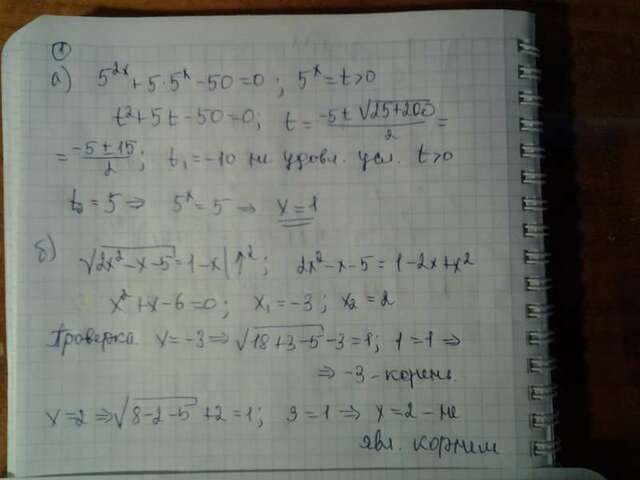 ①
а) 5^{2x} + 5·5^x − 50 = 0 ; 5^x = t > 0
t² + 5t − 50 = 0; t = \frac{-5 ± \sqrt{25+200}}{2} =
= \frac{-5 ± 15}{2}; t₁ = −10 не удовл. усл. t > 0
t₂ = 5 ⇒ 5^x = 5 ⇒ x = 1
б) \sqrt{2x² − x − 5} = 1 − x | ↑²; 2x² − x − 5 = 1 − 2x + x²
x² + x − 6 = 0; x₁ = −3; x₂ = 2
Проверка x = −3 ⇒ \sqrt{18 + 3 − 5} − 3 = 1; 1 = 1 ⇒
⇒ −3 − корень.
x = 2 ⇒ \sqrt{8 − 2 − 5} + 2 = 1; 3 = 1 ⇒ x = 2 − не
явл. корнем